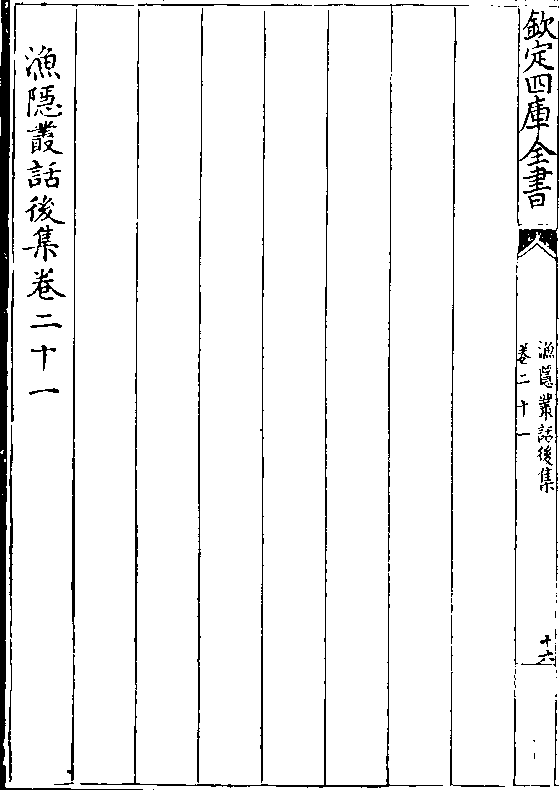 欽定四庫全書
漁隱叢話後集
卷二十一
十六
漁隱叢話後集卷二十一